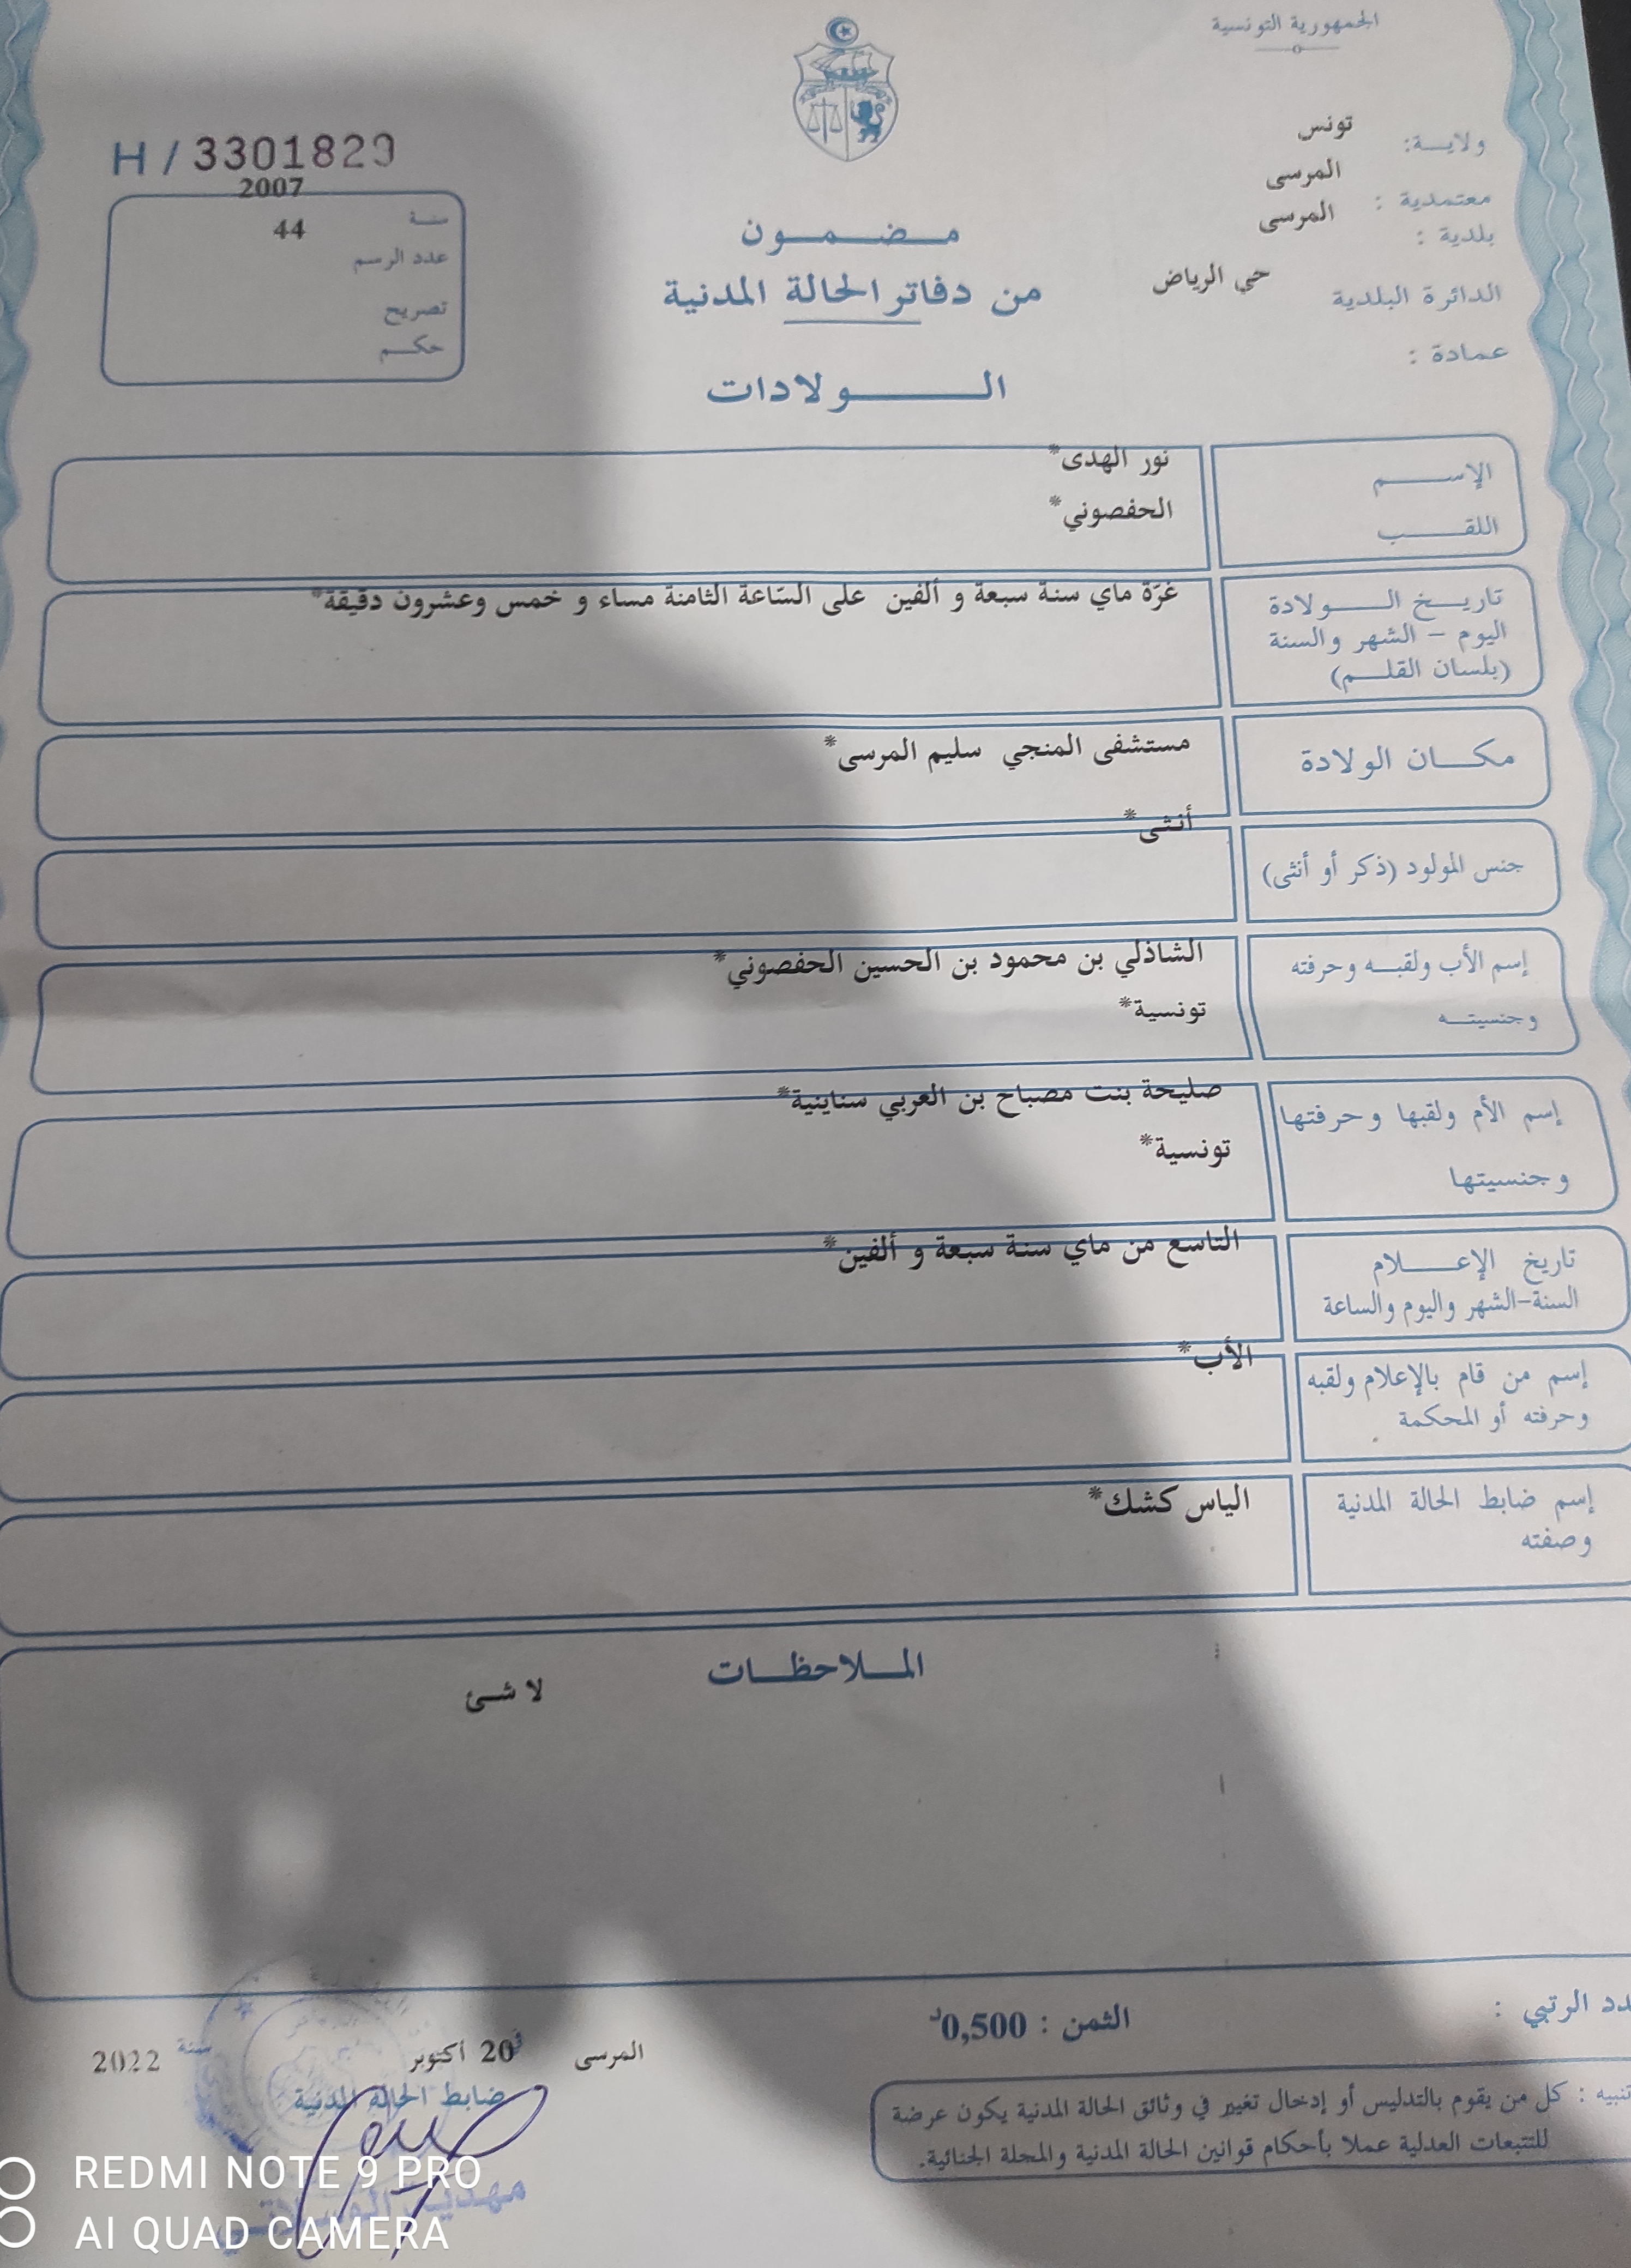 الجمهورية التونسية
ولاية: تونس
معتمدية : المرسى
بلدية : المرسى
الدائرة البلدية حي الرياض
عمادة :
H / 3301829
2007
سنة
44
عدد الرسم
تصريح
حكم
مضمون
من دفاتر الحالة المدنية
الولادات
الإسم نور الهدى*
اللقب الحفصوني*
تاريخ الولادة غرّة ماي سنة سبعة و ألفين على السّاعة الثامنة مساء و خمس وعشرون دقيقة*
اليوم - الشهر والسنة
(بلسان القلم)
مكان الولادة مستشفى المنجي سليم المرسى*
جنس المولود (ذكر أو أنثى) أنثى*
إسم الأب ولقبه وحرفته الشاذلي بن محمود بن الحسين الحفصوني*
وجنسيته تونسية*
إسم الأم ولقبها وحرفتها صليحة بنت مصباح بن العربي سناينية*
وجنسيتها تونسية*
تاريخ الإعلام التاسع من ماي سنة سبعة و ألفين*
السنة-الشهر واليوم والساعة
إسم من قام بالإعلام ولقبه الأب*
وحرفته أو المحكمة
إسم ضابط الحالة المدنية الياس كشك*
وصفته
الملاحظات
لا شئ
دد الرتبي :
الثمن : 0,500د
المرسى في 20 أكتوبر سنة 2022
ضابط الحالة المدنية
تنبيه : كل من يقوم بالتدليس أو إدخال تغيير في وثائق الحالة المدنية يكون عرضة
للتتبعات العدلية عملا بأحكام قوانين الحالة المدنية والمجلة الجنائية.
REDMI NOTE 9 PRO
AI QUAD CAMERA